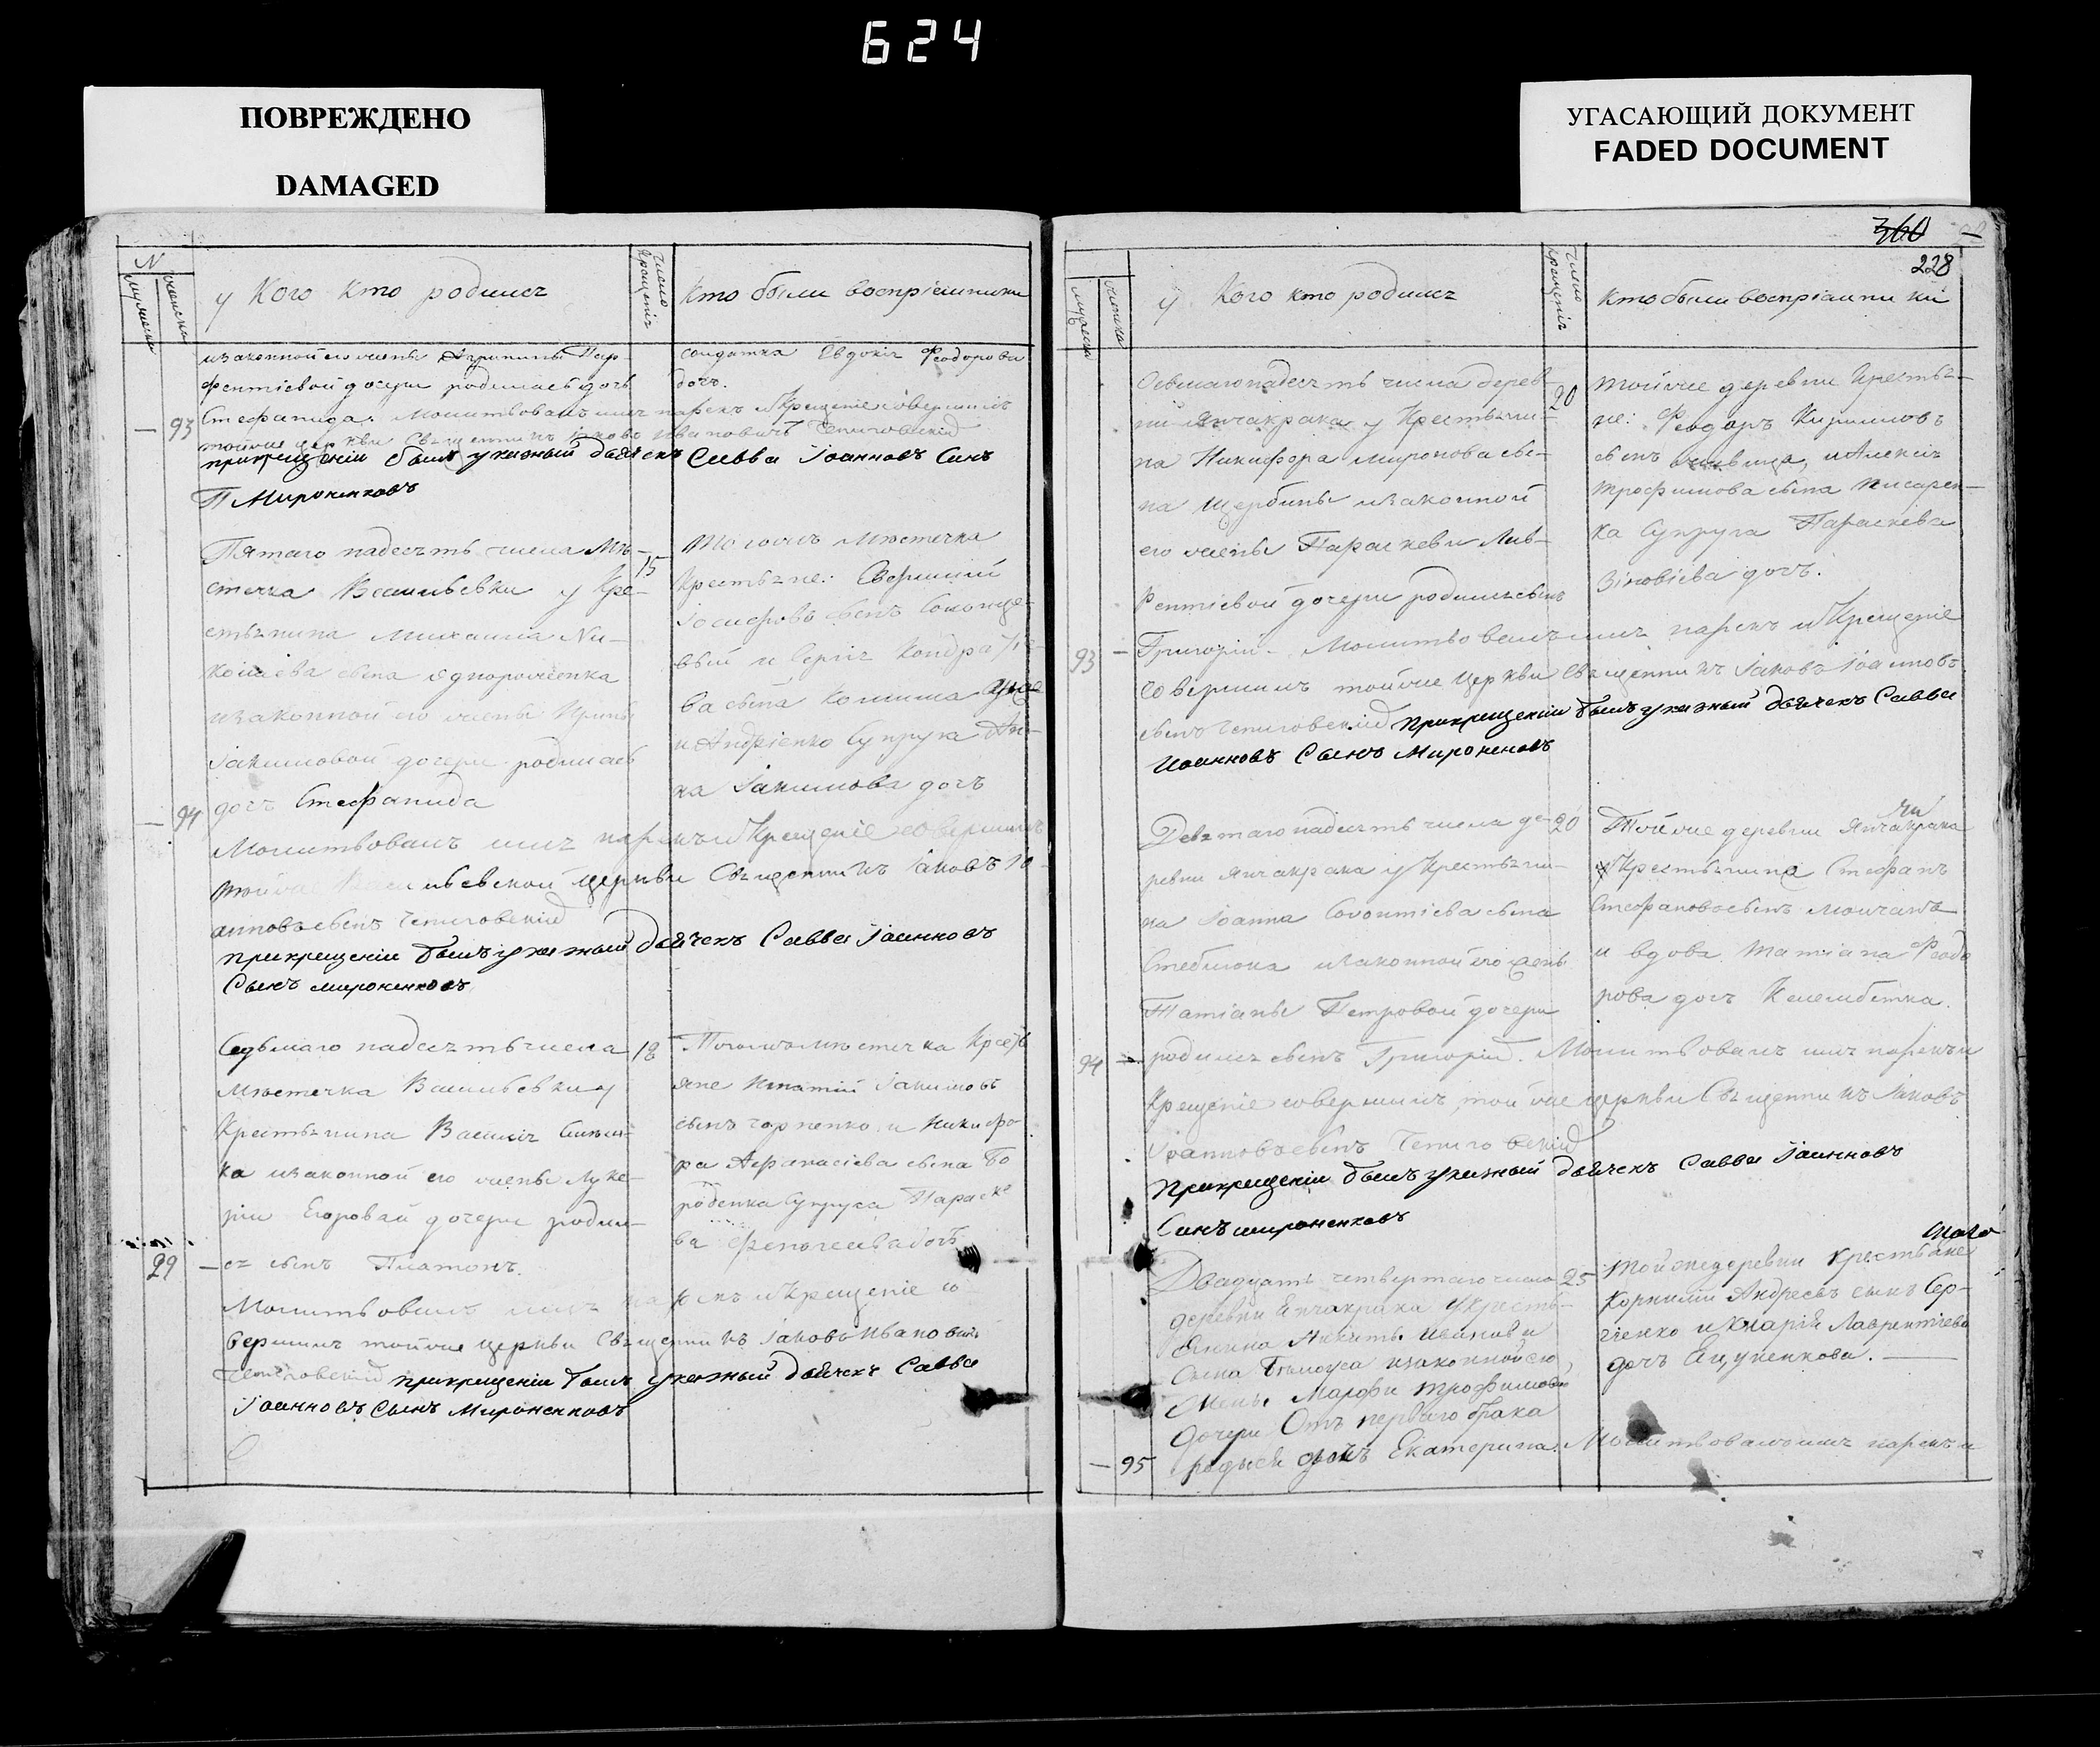 624
ПОВРЕЖДЕНО
DAMAGED
УГАСАЮЩИЙ ДОКУМЕНТ
FADED DOCUMENT
N
у Кого кто родился
число крещенія
Кто были воспріемники
изаконной его жены Агрипины Пар-
фентіевой дочери родилась дочь
93 Стефанида. Молитвовалъ имя нарекъ и Крещеніе совершилъ
тойже церкви Священникъ Іаковъ Ивановичъ
прикрещеніи былъ указный дьячекъ Савва Іоанновъ Синъ
П Мироненковъ
солдатка Евдокія Феодорова
дочь.
Пятаго надесять числа Мѣ-
стечка Василевки у Кре-
стьянина Михаила Ни-
колаева сына
изаконной его жены Ирины
Іакимовой дочери родилась
94 дочь Стефанида
15
тогожъ мѣстечка
Крестьяне:
Іосифовъ сынъ
вый и Сергія Кондратіе-
ва сына
Андріенко Супруга Ан-
на Іакимова дочь
Молитвовалъ имя нарекъ и Крещеніе совершилъ
тойже Васильевской церкви Священникъ Іаковъ Іо-
анновъ сынъ
прикрещеніи былъ указный дьячекъ Савва Іаанновъ
Сынъ мироненковъ
Седьмаго надесять числа
Мѣстечка Василевки у
Крестьянина Василія
ка изаконной его жены Луке-
ріи Егоровай дочери родил-
29 ся сынъ Платонъ.
18
Тогожъ мѣстечка Кресть
яне Игнатій Іакимовъ
сынъ Горпенко и Никифо
ра Афанасіева сына Бо
роденка Супруга Параске
ва дочь
Молитвовалъ имя нарекъ и Крещеніе со
вершилъ тойже церкви Священникъ Іаковъ Ивановичъ
прикрещеніи былъ указный дьячекъ Савва
Іоанновъ Сынъ Мироненковъ
360
228
у Кого кто родился
число крещенія
кто были воспріемники
Осьмагонадесять числа дерев-
ни Янчакрака у Крестьяни-
на Никифора миронова сы-
на Щербины изаконной
его жены Параскеви Лав-
рентіевой дочери родился сынъ
20
тойже деревни Крестья-
не: Феодоръ Кириловъ
сынъ, и Алексія
трофимова сына писарен-
ка Супруга Параскева
Зіновіева дочь.
93 Григорій. Молитвовалъ имя нарекъ и Крещеніе
совершилъ тойже Церкви Священникъ Іаковъ Іоанновъ
сынъ прикрещеніи былъ указный дьячекъ Савва
Иоанновъ Сынъ Мироненовъ
Девятаго надесять числа де-
ревни Янчакрака у Крестьяни-
на Іоанна сына
Стеблюка изаконной его жены
Татіаны Петровой дочери
20
Тойже деревни Янчакрака
Крестьянина Стефанъ
Стефановъ сынъ Молчанъ
и вдова Татіана Феодо
рова дочь
94 родился сынъ Григорій. Молитвовалъ имя нарекъ и
Крещеніе совершилъ тойже церкви Священникъ Іаковъ
Іоанновъ сынъ
Прикрещеніи былъ указный дьячекъ Савва Іаанновъ
Синъ мироненковъ
Двадцать четвертаго числа
деревни Енчакрака у Кресть-
янина Никиты Иванова
Сына Билоуса изаконной его
Жены Марфи трофимовы
Дочери Отъ перваго брака
95 родися дочь Екатерина. Молитвовалъ имя нарекъ и
25
тойже деревни Крестьяне
Корнилій Андреевъ сынъ Сер-
гіенко и Марія Лаврентіева
дочь